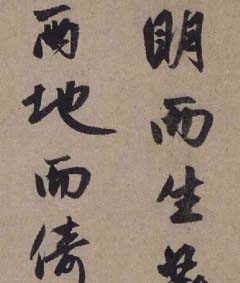 明而生
兩地而倚